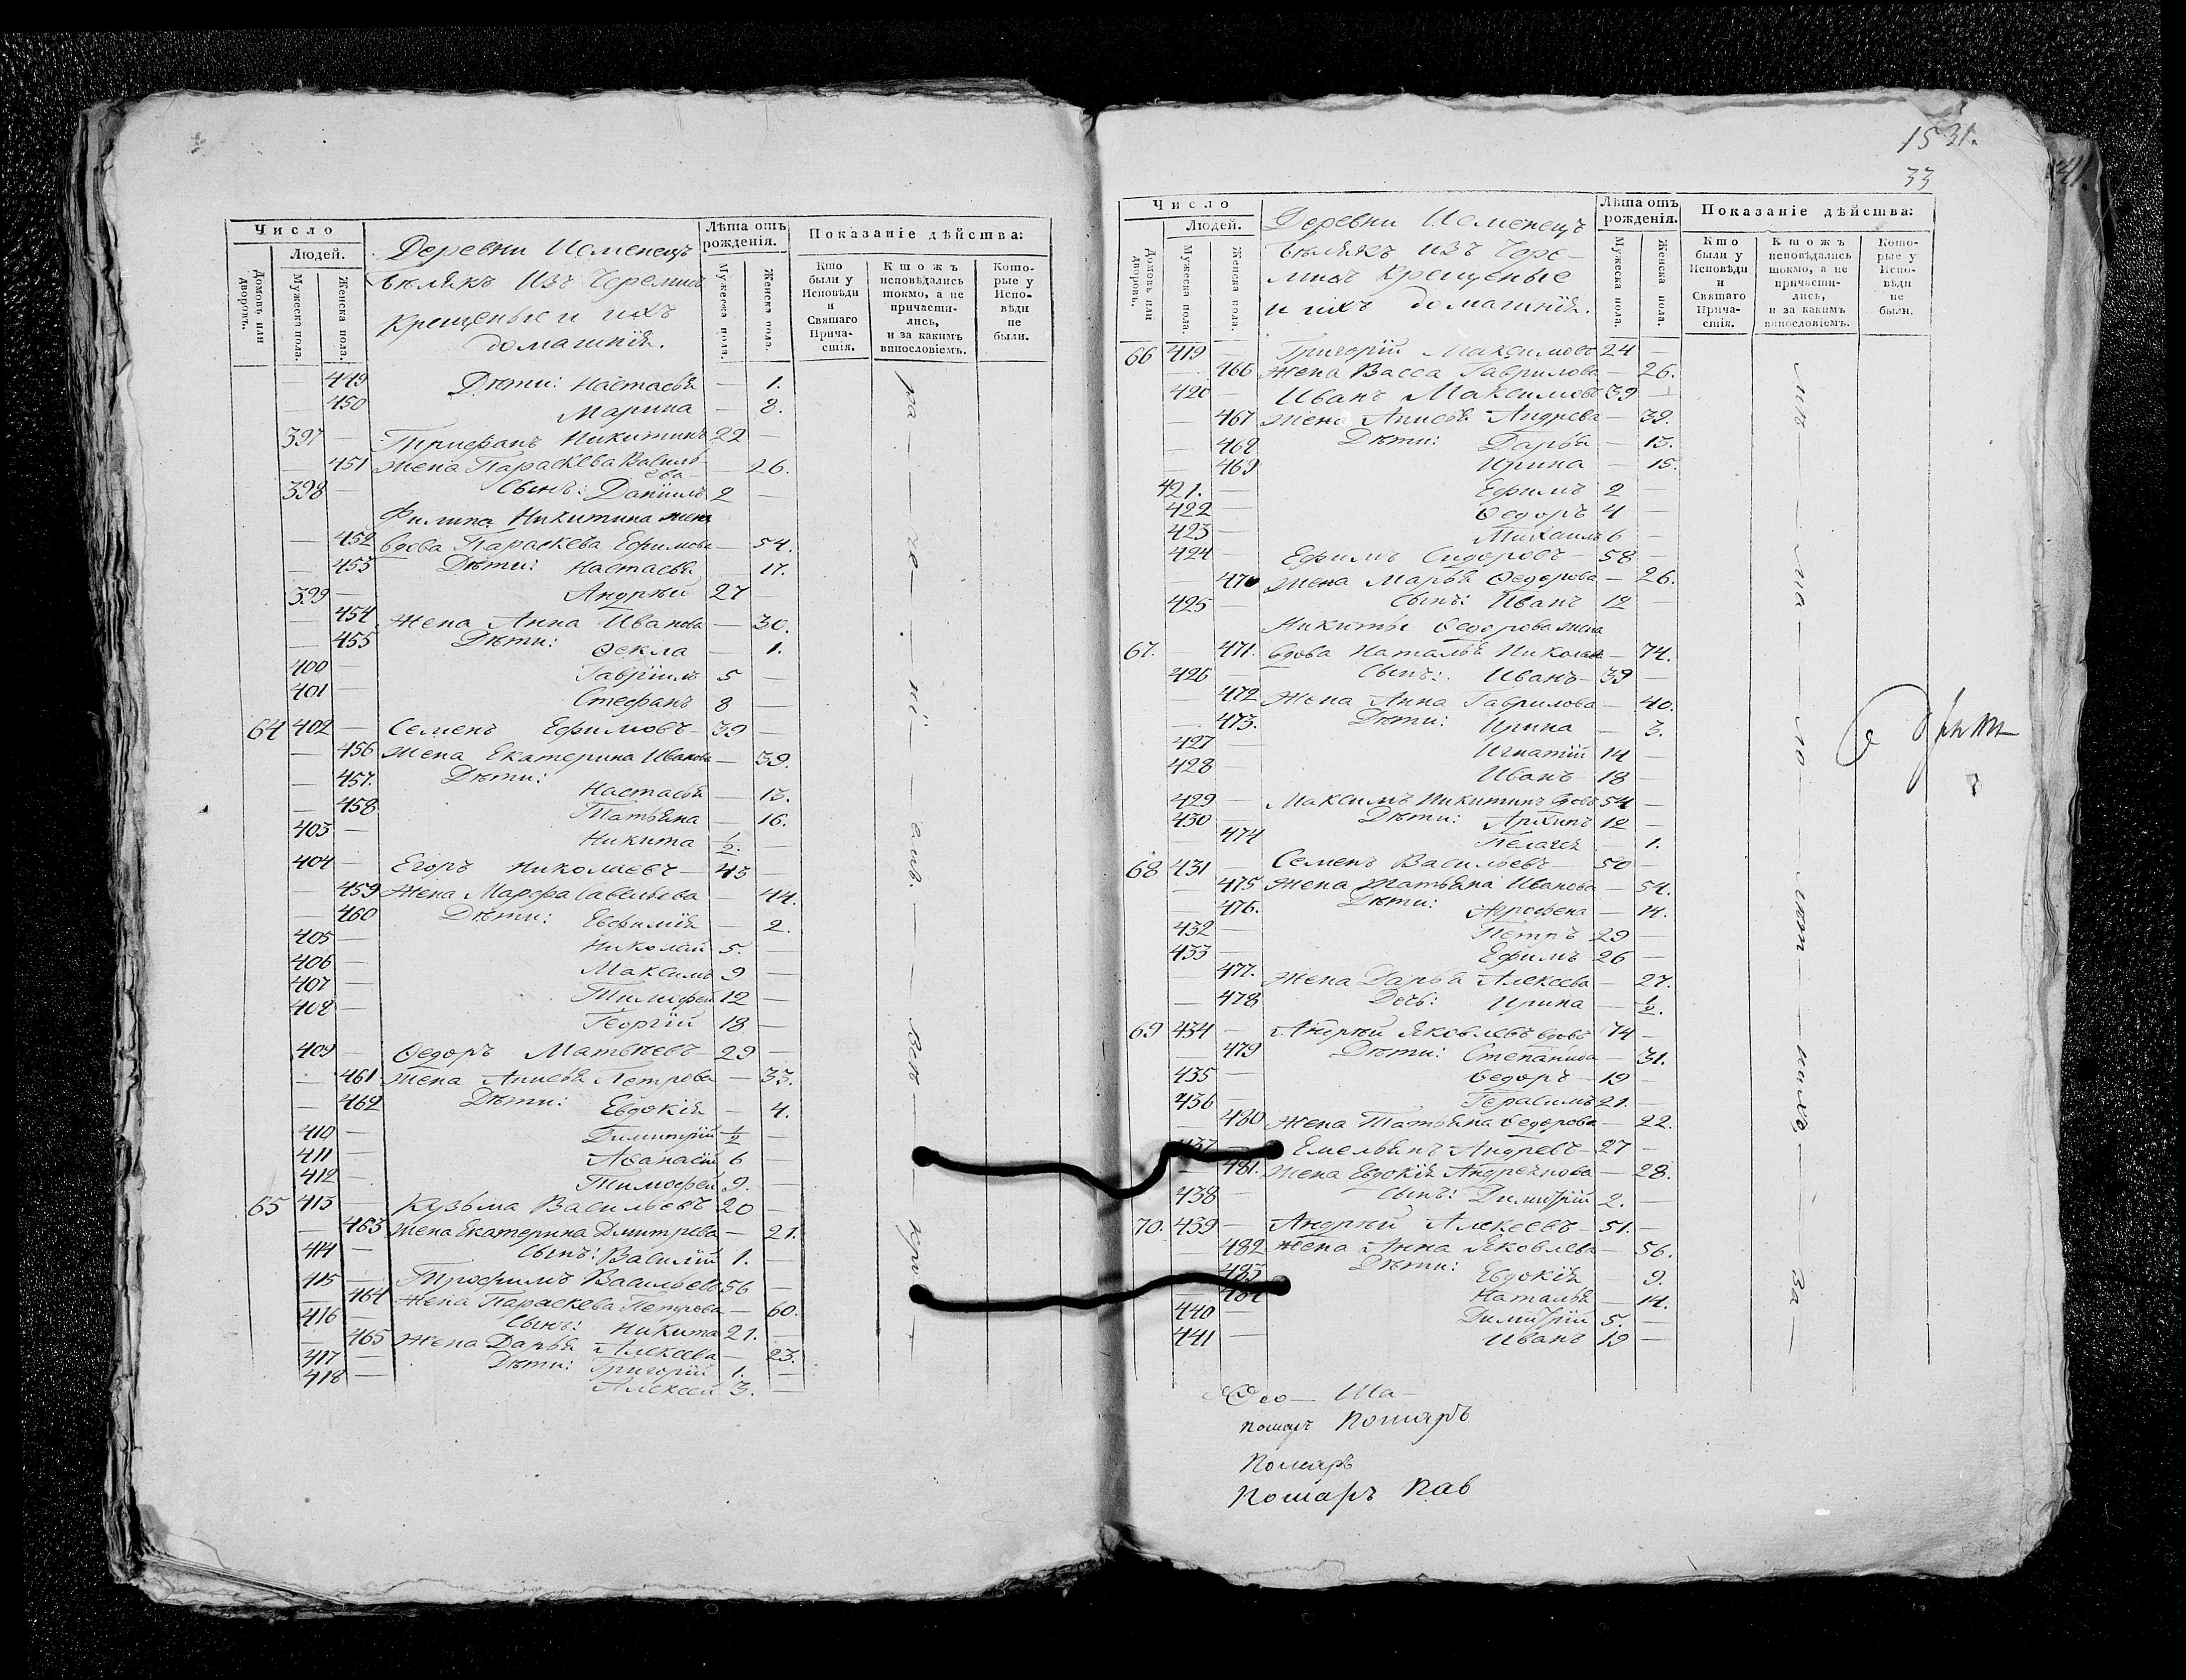 Число
Людей.
Домовъ или дворовъ.
Мужеска пола.
Женска пола.
Деревни Исменецъ
Бѣлякъ Изъ Черемисъ
Крещеные и ихъ
домашнія.
Лѣта отъ рожденія.
Мужеска пола.
Женска пола.
Показаніе дѣйства:
Кто были у Исповѣди и Святаго Причастія.
Кто жъ исповѣдались токмо, а не причастились, и за какимъ винословіемъ.
Которые у Исповѣди не были.
— 449 Дѣти: Настасья — 1.
— 450 Марина — 8.
397 — Трифанъ Никитинъ 22 —
— 451 Жена Параскева Василь- — 26.
ева
398 — Сынъ: Даніилъ 2 —
Филипа Никитина жена
— 452 вдова Параскева Ефимова — 54.
— 453 Дѣти: Настасья — 17.
399 — Андрѣй 27 —
— 454 Жена Анна Иванова — 30.
— 455 Дѣти: Ѳекла — 1.
400 — Гавріилъ 5 —
401 — Стефанъ 8 —
64 402 — Семенъ Ефимовъ 39 —
— 456 Жена Екатерина Иванова — 39.
— 457. Дѣти: Настасья — 13.
— 458 Татьяна — 16.
403 — Никита 1/2. —
404 — Егоръ Николаевъ 45 —
— 459 Жена Марфа Савельева — 44.
— 460 Дѣти: Евфимія — 2.
405 — Николай 5. —
406 — Максимъ 9 —
407 — Тимофей 12 —
408 — Георгій 18 —
409 — Ѳедоръ Матвѣевъ 29 —
— 461 Жена Анисья Петрова — 33.
— 462 Дѣти: Евдокія — 4.
410 — Димитрій 1/2 —
411 — Аѳанасій 6 —
412 — Тимофей 9. —
65 413 — Кузьма Васильевъ 20 —
— 463 Жена Екатерина Дмитрева — 21.
414 — Сынъ: Василій 1. —
415 — Трофимъ Васильевъ 56 —
— 464 Жена Параскева Петрова — 60.
416 — Сынъ: Никита 21. —
— 465 Жена Дарья Алексева — 23.
417 — Дѣти: Григорій 1. —
418 — Алексей 3. —
1531.
33
41.
Число
Людей.
Домовъ или дворовъ.
Мужеска пола.
Женска пола.
Деревни Исменецъ
Бѣлякъ изъ Чере-
мисъ Крещеные
и ихъ домашнія.
Лѣта отъ рожденія.
Мужеска пола.
Женска пола.
Показаніе дѣйства:
Кто были у Исповѣди и Святаго Причастія.
Кто жъ исповѣдались токмо, а не причастились, и за какимъ винословіемъ.
Которые у Исповѣди не были.
66 419 — Григорій Максимовъ 24 —
— 466 Жена Васса Гаврилова — 26.
420 — Иванъ Максимовъ 39 —
— 467 Жена Анисья Андрева — 39.
— 468 Дѣти: Дарья — 13.
— 469 Ирина — 15.
421. — Ефимъ 2 —
422 — Ѳедоръ 4 —
423 — Михаилъ 6 —
424 — Ефимъ Сидоровъ 58 —
— 470 Жена Марья Ѳедорова — 26.
425 — Сынъ: Иванъ 12 —
Никиты Ѳедорова жена
67. — 471. вдова Наталья Николае — 74.
426 — Сынъ: Иванъ 39 —
— 472 Жена Анна Гаврилова — 40.
— 473. Дѣти: Ирина — 3.
427 — Игнатій 14 —
428 — Иванъ 18 —
429 — Максимъ Никитинъ вдовъ 54 —
430 — Дѣти: Архипъ 12 —
474 Пелагея 1.
68 431 — Семенъ Васильевъ 50 —
— 475 Жена Татьяна Иванова — 54.
— 476. Дѣти: Агрофена — 14.
432 — Петръ 29 —
433 — Ефимъ 26 —
477. Жена Дарья Алексева — 27.
— 478 Дочь: Ирина — 1/2.
69 434 — Андрѣй Яковлевъ вдовъ 74 —
— 479 Дѣти: Степанида — 31.
435 — Ѳедоръ 19 —
436 — Герасимъ 21. —
— 480 Жена Татьяна Ѳедорова — 22.
437 — Емельянъ Андревъ 27 —
— 481. Жена Евдокія Андреянова — 28.
438 — Сынъ: Димитрій 2. —
70. 439 — Андрѣй Алексевъ 51. —
— 482 Жена Анна Яковлева — 56.
483 Дѣти: Евдокія — 9.
484 Наталья — 14.
440 — Димитрій 5. —
441 — Иванъ 19 —
Ѳео— Ша—
Пошаръ Пошаръ
Пошаръ
Пошаръ Пав